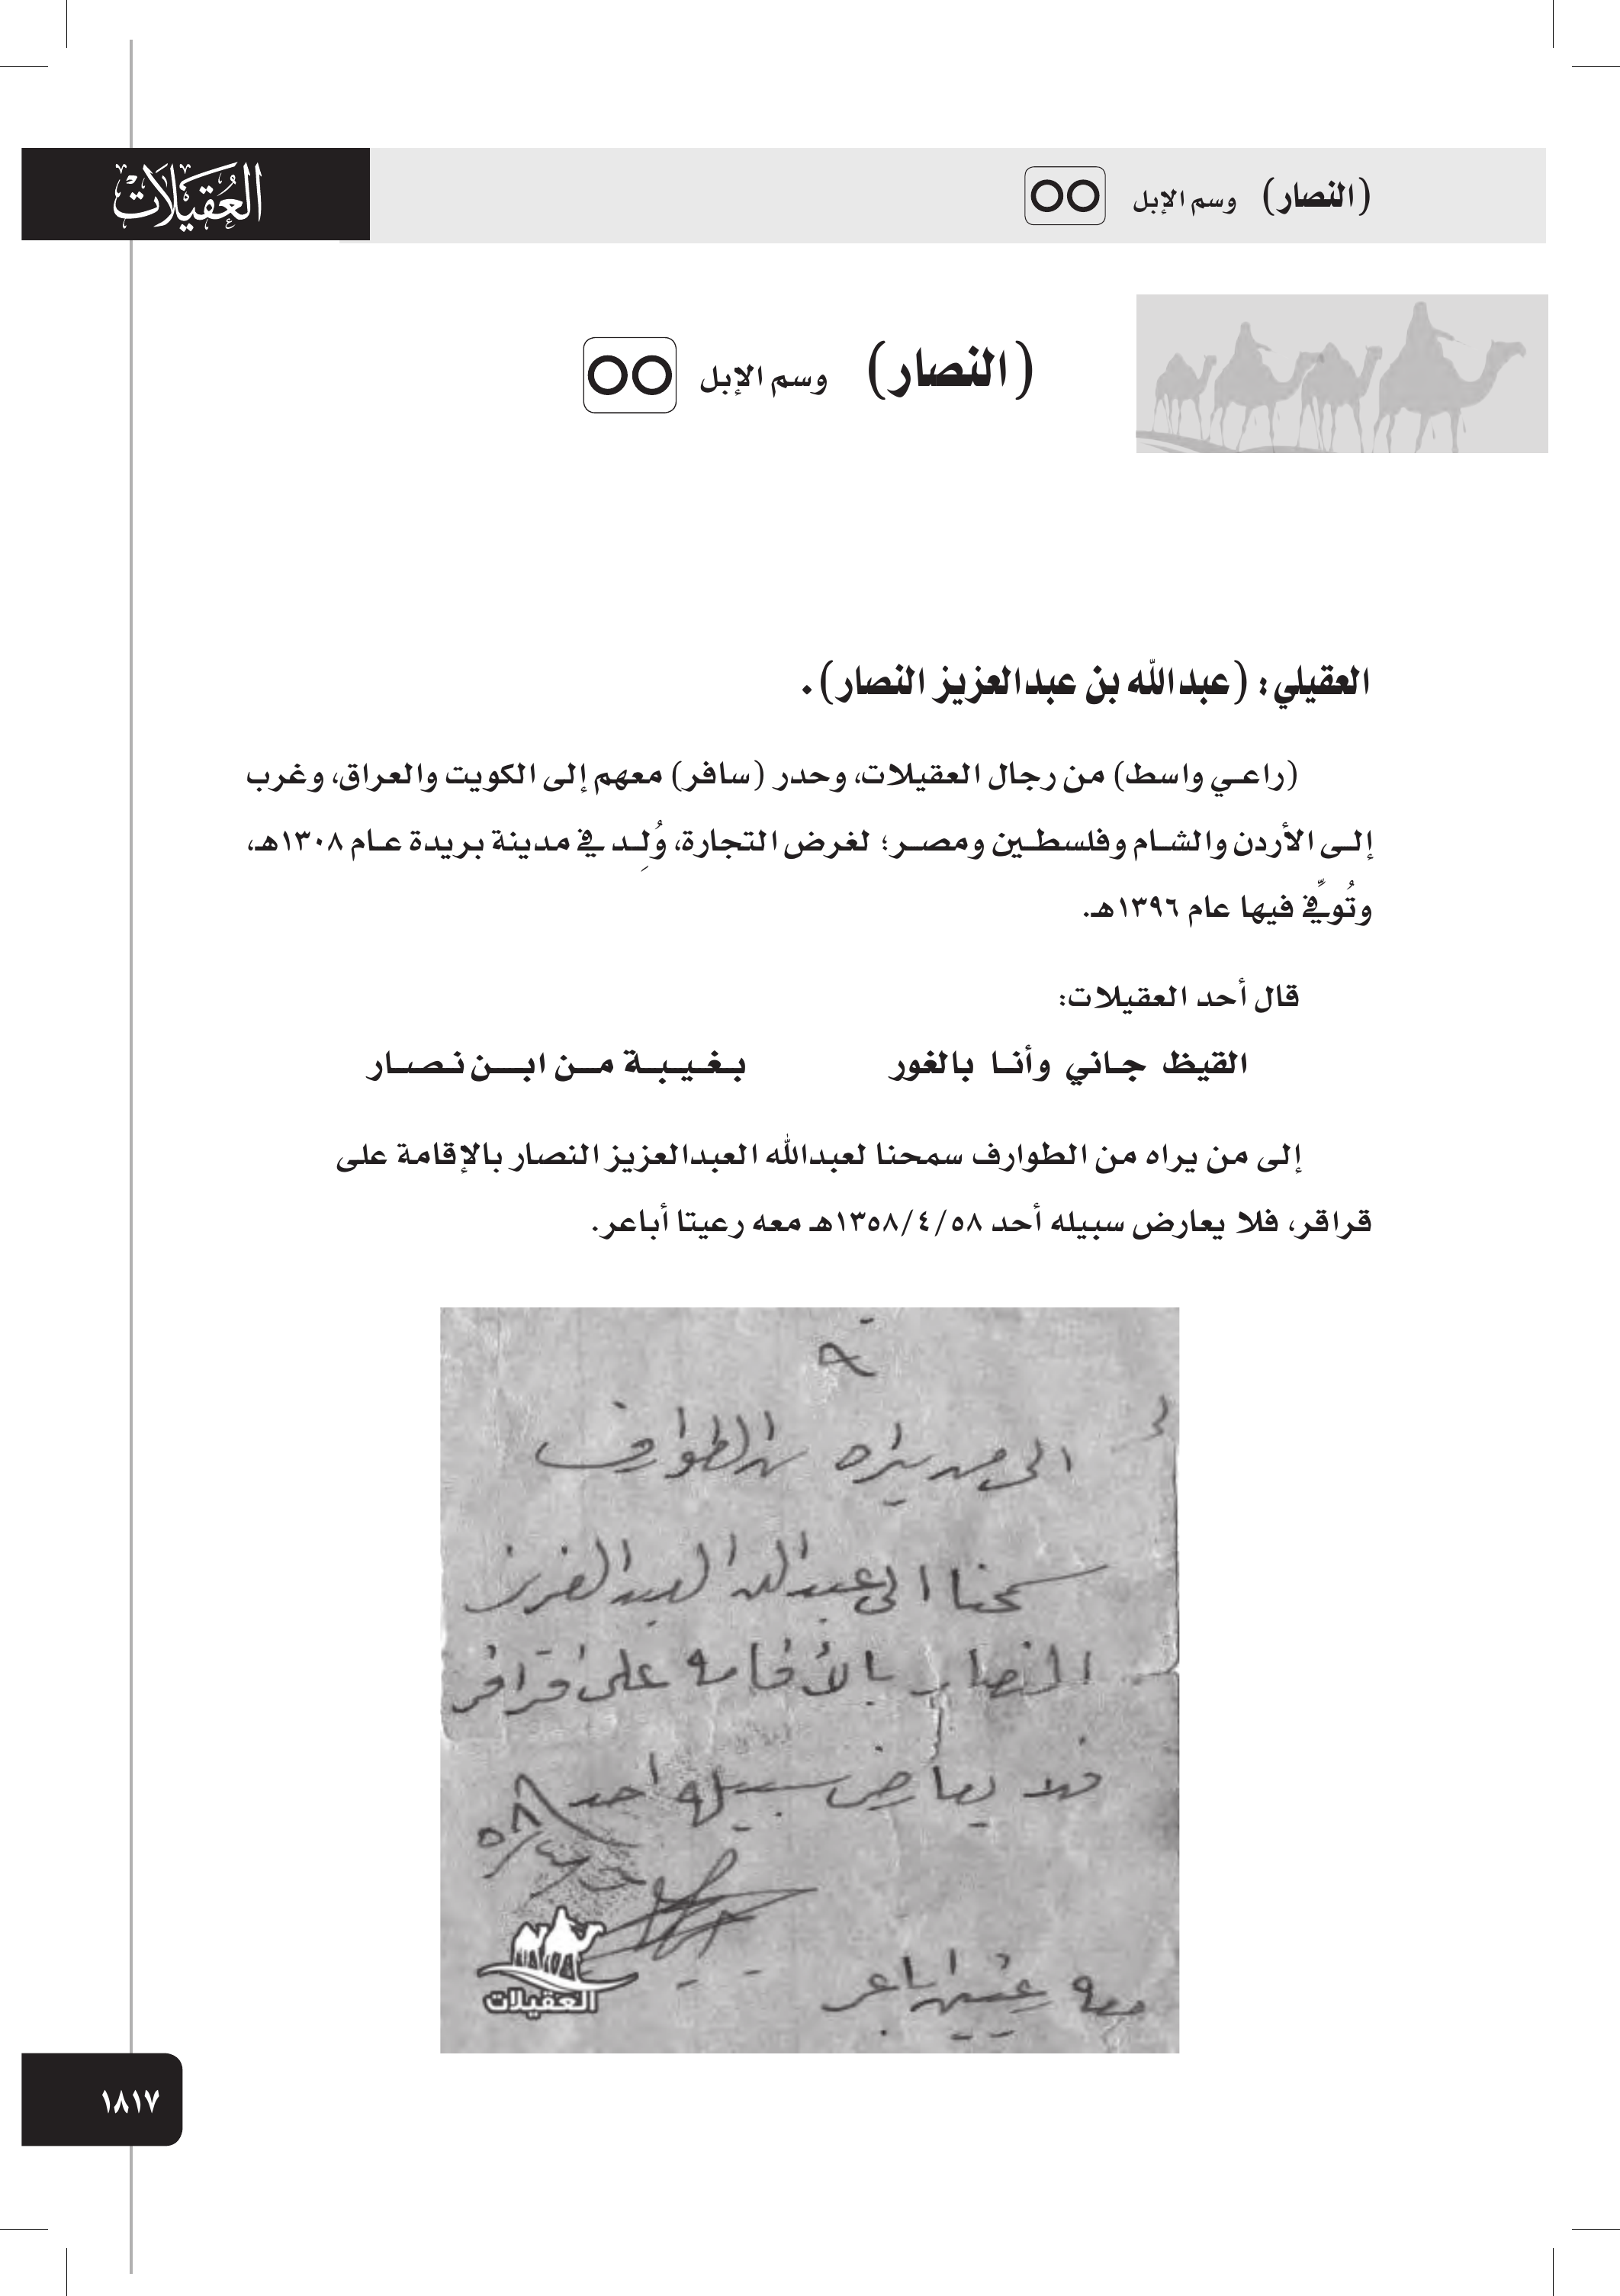 (النصار) وسم الإبل
العُقيلات
(النصار) وسم الإبل
العقيلي: (عبدالله بن عبدالعزيز النصار).
(راعي واسط) من رجال العقيلات، وحدر (سافر) معهم إلى الكويت والعراق، وغرب
إلى الأردن والشام وفلسطين ومصر؛ لغرض التجارة، وُلِد في مدينة بريدة عام ١٣٠٨هـ،
وتُوفِّي فيها عام ١٣٩٦هـ.
قال أحد العقيلات:
القيظ جاني وأنا بالغور بغيبة من ابن نصار
إلى من يراه من الطوارف سمحنا لعبدالله العبدالعزيز النصار بالإقامة على
قراقر، فلا يعارض سبيله أحد ١٣٥٨/٤/٥٨هـ معه رعيتا أباعر.
الى من يراه من الطوارف
سمحنا الى عبدالله العبدالعزيز
النصار بالأقامه على قراقر
فلا يعارض سبيله احد
معه رعيتين اباعر
العقيلات
١٨١٧